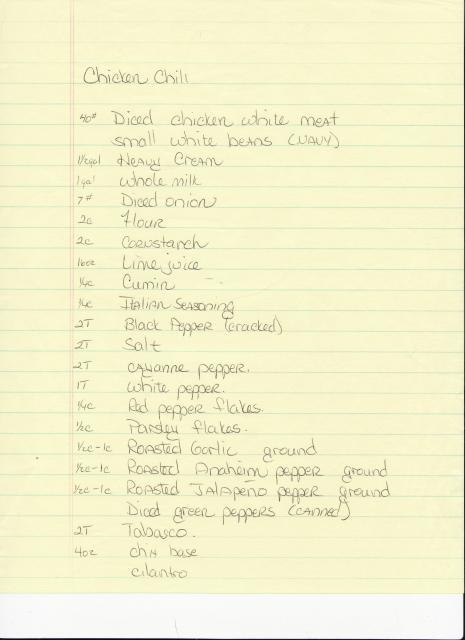 Chicken Chili
40# Diced chicken white meat
small white beans (NAVY)
1/2gal Heavy Cream
1gal whole milk
7# Diced onion
2c Flour
2c Cornstarch
16oz Lime juice
1/4c Cumin
1/4c Italian Seasoning
2T Black Pepper (cracked)
2T Salt
2T cayanne pepper.
1T white pepper.
1/4c Red pepper flakes.
1/2c Parsley flakes.
1/2c-1c Roasted Garlic ground
1/2c-1c Roasted Anaheim pepper ground
1/2c-1c Roasted JALAPEÑO pepper ground
Diced green peppers (canned)
2T Tabasco.
4oz chix base
cilantro